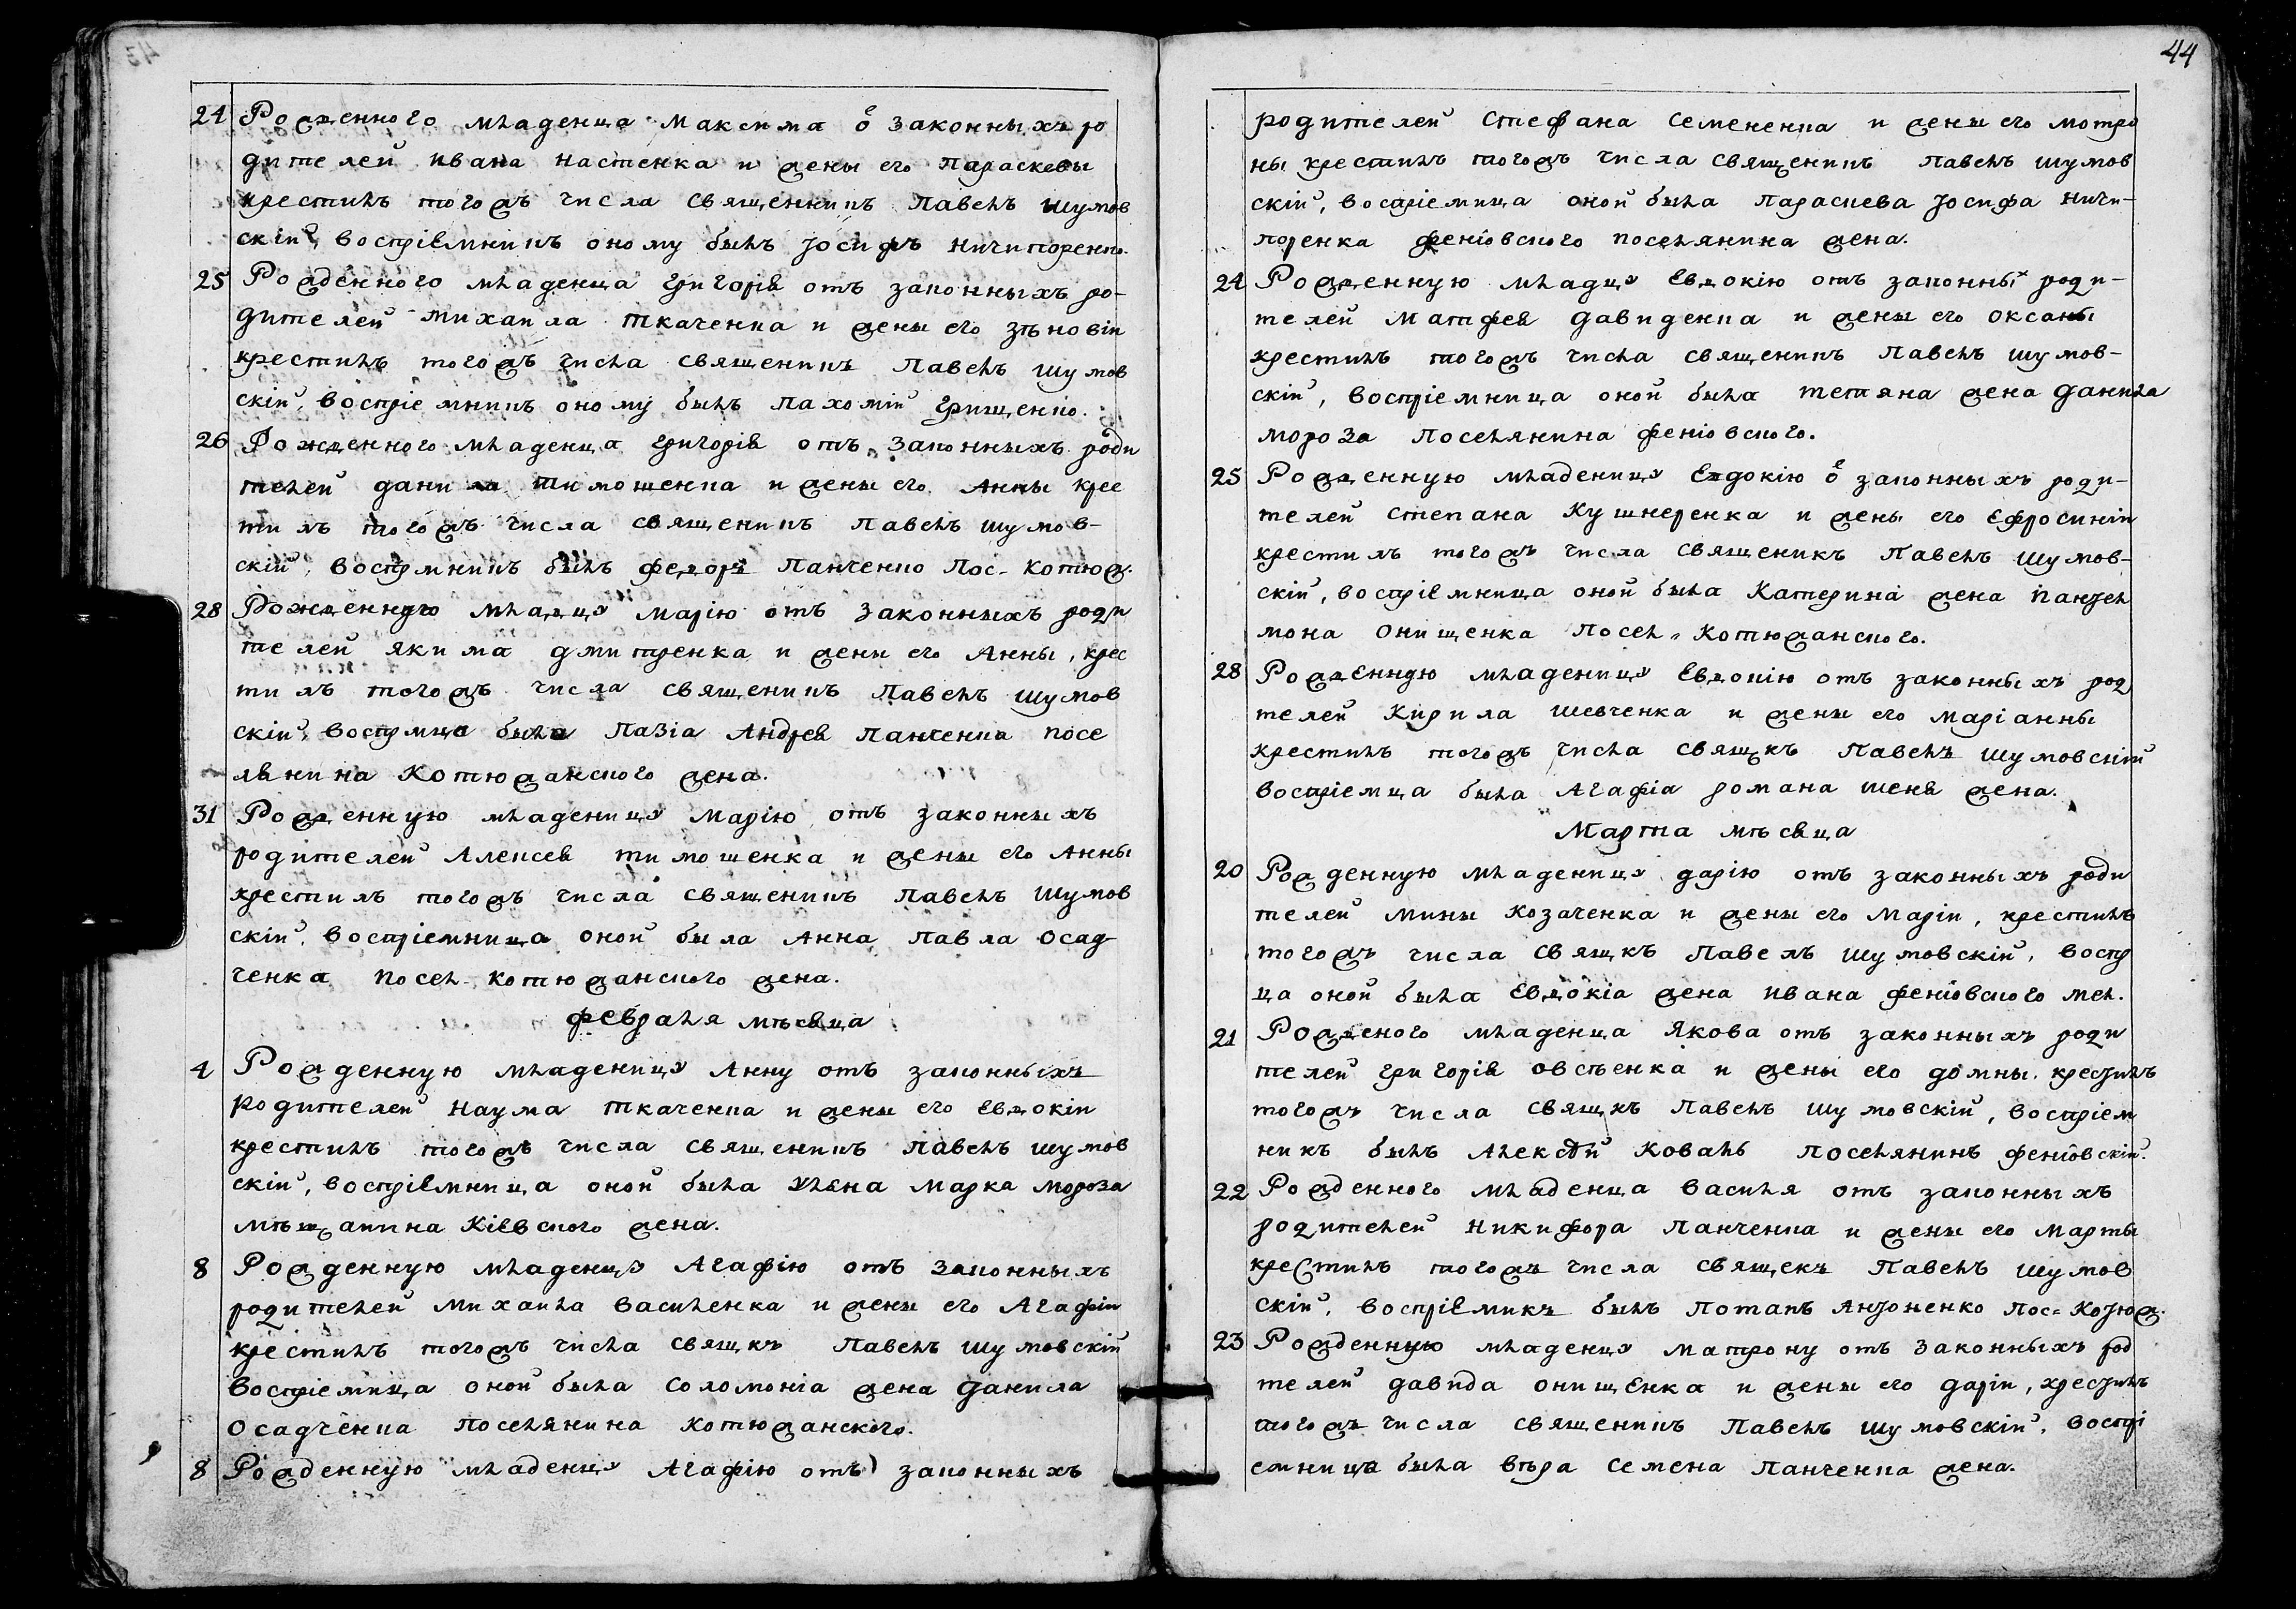 44
24 Рожденного младенца Максима ѿ законныхъ ро
дителей Ивана Настенка и жены его Параскевы
крестилъ тогожъ числа священникъ Павелъ Шумов
скій, воспріемникъ оному былъ Іосифъ Ничипоренко.
25 Рожденного младенца Григорія отъ законныхъ ро-
дителей Михаила Ткаченка и жены его Зѣновіи
крестилъ тогожъ числа священикъ Павелъ Шумов
скій, воспріемникъ оному былъ Пахомій Грищенко.
26 Рожденного младенца Григорія отъ законныхъ роди
телей Данила Тимошенка и жены его Анны крес
тилъ тогожъ числа священикъ Павелъ Шумов-
скій, воспрмникъ былъ Федоръ Панченко Пос- Котюж.
28 Рожденную младцу Марію отъ законныхъ роди
телей Якима Дмитренка и жены его Анны, крес
тилъ тогожъ числа священикъ Павелъ Шумов
скій, воспрмца была Пазіа Андрея Панченка посе
лянина Котюжанского жена.
31 Рожденную младеницу Марію отъ законныхъ
родителей Алексея Тимошенка и жены его Анны
крестилъ тогожъ числа священикъ Павелъ Шумов
скій, воспріемница оной была Анна Павла Осад
ченка посел- Котюжанского жена.
Февраля мѣсяца
4 Рожденную младеницу Анну отъ законныхъ
родителей Наума Ткаченка и жены его Евдокіи
крестилъ тогожъ числа священикъ Павелъ Шумов
скій, воспріемница оной была Уляна Марка Мороза
мѣщанина Кіевского жена.
8 Рожденную младенцу Агафію отъ законныхъ
родителей Михаила Василенка и жены его Агафіи
крестилъ тогожъ числа свящкъ Павелъ Шумовскій
воспріемица оной была Соломоніа жена Данила
Осадченка поселянина Котюжанского.
8 Рожденную младенцу Агафію отъ законныхъ
родителей Стефана Семененка и жены его Мотро
ны крестилъ тогожъ числа священикъ Павелъ Шумов
скій, воспріемница оной была Параскева Іосифа Ничи-
поренка Феніовского поселянина жена.
24 Рожденную младцу Евдокію отъ законных роди-
телей Матфея Давиденка и жены его Оксаны
крестилъ тогожъ числа священикъ Павелъ Шумов-
скій, воспріемница оной была Тетяна жена Данила
Мороза поселянина Феніовского.
25 Рожденную младеницу Евдокію ѿ законныхъ роди-
телей Степана Кушнеренка и жены его Ефросиніи
крестилъ тогожъ числа священикъ Павелъ Шумов-
скій, воспріемница оной была Катерина жена Пантел
мона Онищенка посел- Котюжанского.
28 Рожденную младеницу Евдокію отъ законныхъ род
телей Кирила Шевченка и жены его Маріанны
крестилъ тогожъ числа свящкъ Павелъ Шумовскій
воспріемца была Агафіа Романа жена.
Марта мѣсяца
20 Рожденную младеницу Дарію отъ законныхъ роди
телей Мины Козаченка и жены его Маріи, крестилъ
тогожъ числа свящкъ Павелъ Шумовскій, воспр
ца оной была Евдокіа жена Ивана Феніовского мел.
21 Рожденого младенца Якова отъ законныхъ роди
телей Григорія Овсѣенка и жены его Домны. крестилъ
тогожъ числа свящкъ Павелъ Шумовскій, воспріем
никъ былъ Алексѣй Коваль поселянинъ Феніовскій.
22 Рожденного младенца Василя отъ законныхъ
родителей Никифора Панченка и жены его Марты
крестилъ тогожъ числа свящекъ Павелъ Шумов
скій, воспріемикъ былъ Потапъ Антоненко Пос= Котюж.
23 Рожденную младенцу Матрону отъ законныхъ род
телей Давида Онищенка и жены его Даріи, крестилъ
тогожъ числа священикъ Павелъ Шумовскій, воспрі
емница была Вѣра Семена Панченка жена.